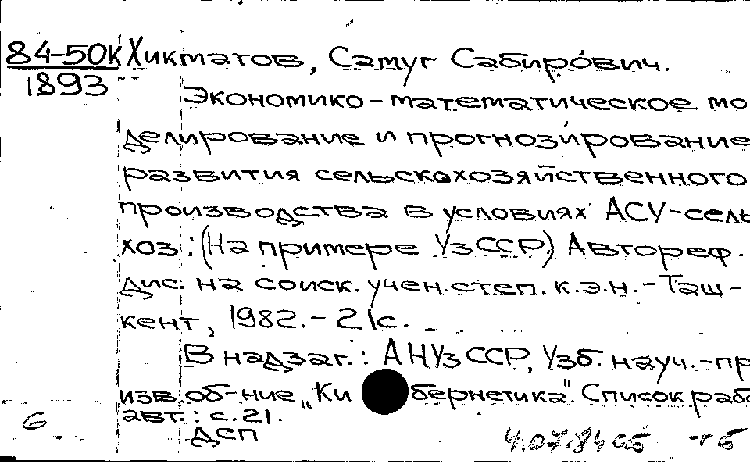 84-50К Хикматов, Самуг Сабирович.
1893
Экономико-математическое мо
делирование и прогнозирование
развития сельскохозяйственного
производства в условиях АСУ-сель
хоз: (На примере УзССР) Автореф.
дис. на соиск. учен. степ. к.э.н. - Таш-
кент, 1982. - 21с.
В надзаг.: АН УзССР, Узб. науч.-пр
изв. об-ние „Ки бернетика". Список раб
авт.: с. 21.
6
ДСП